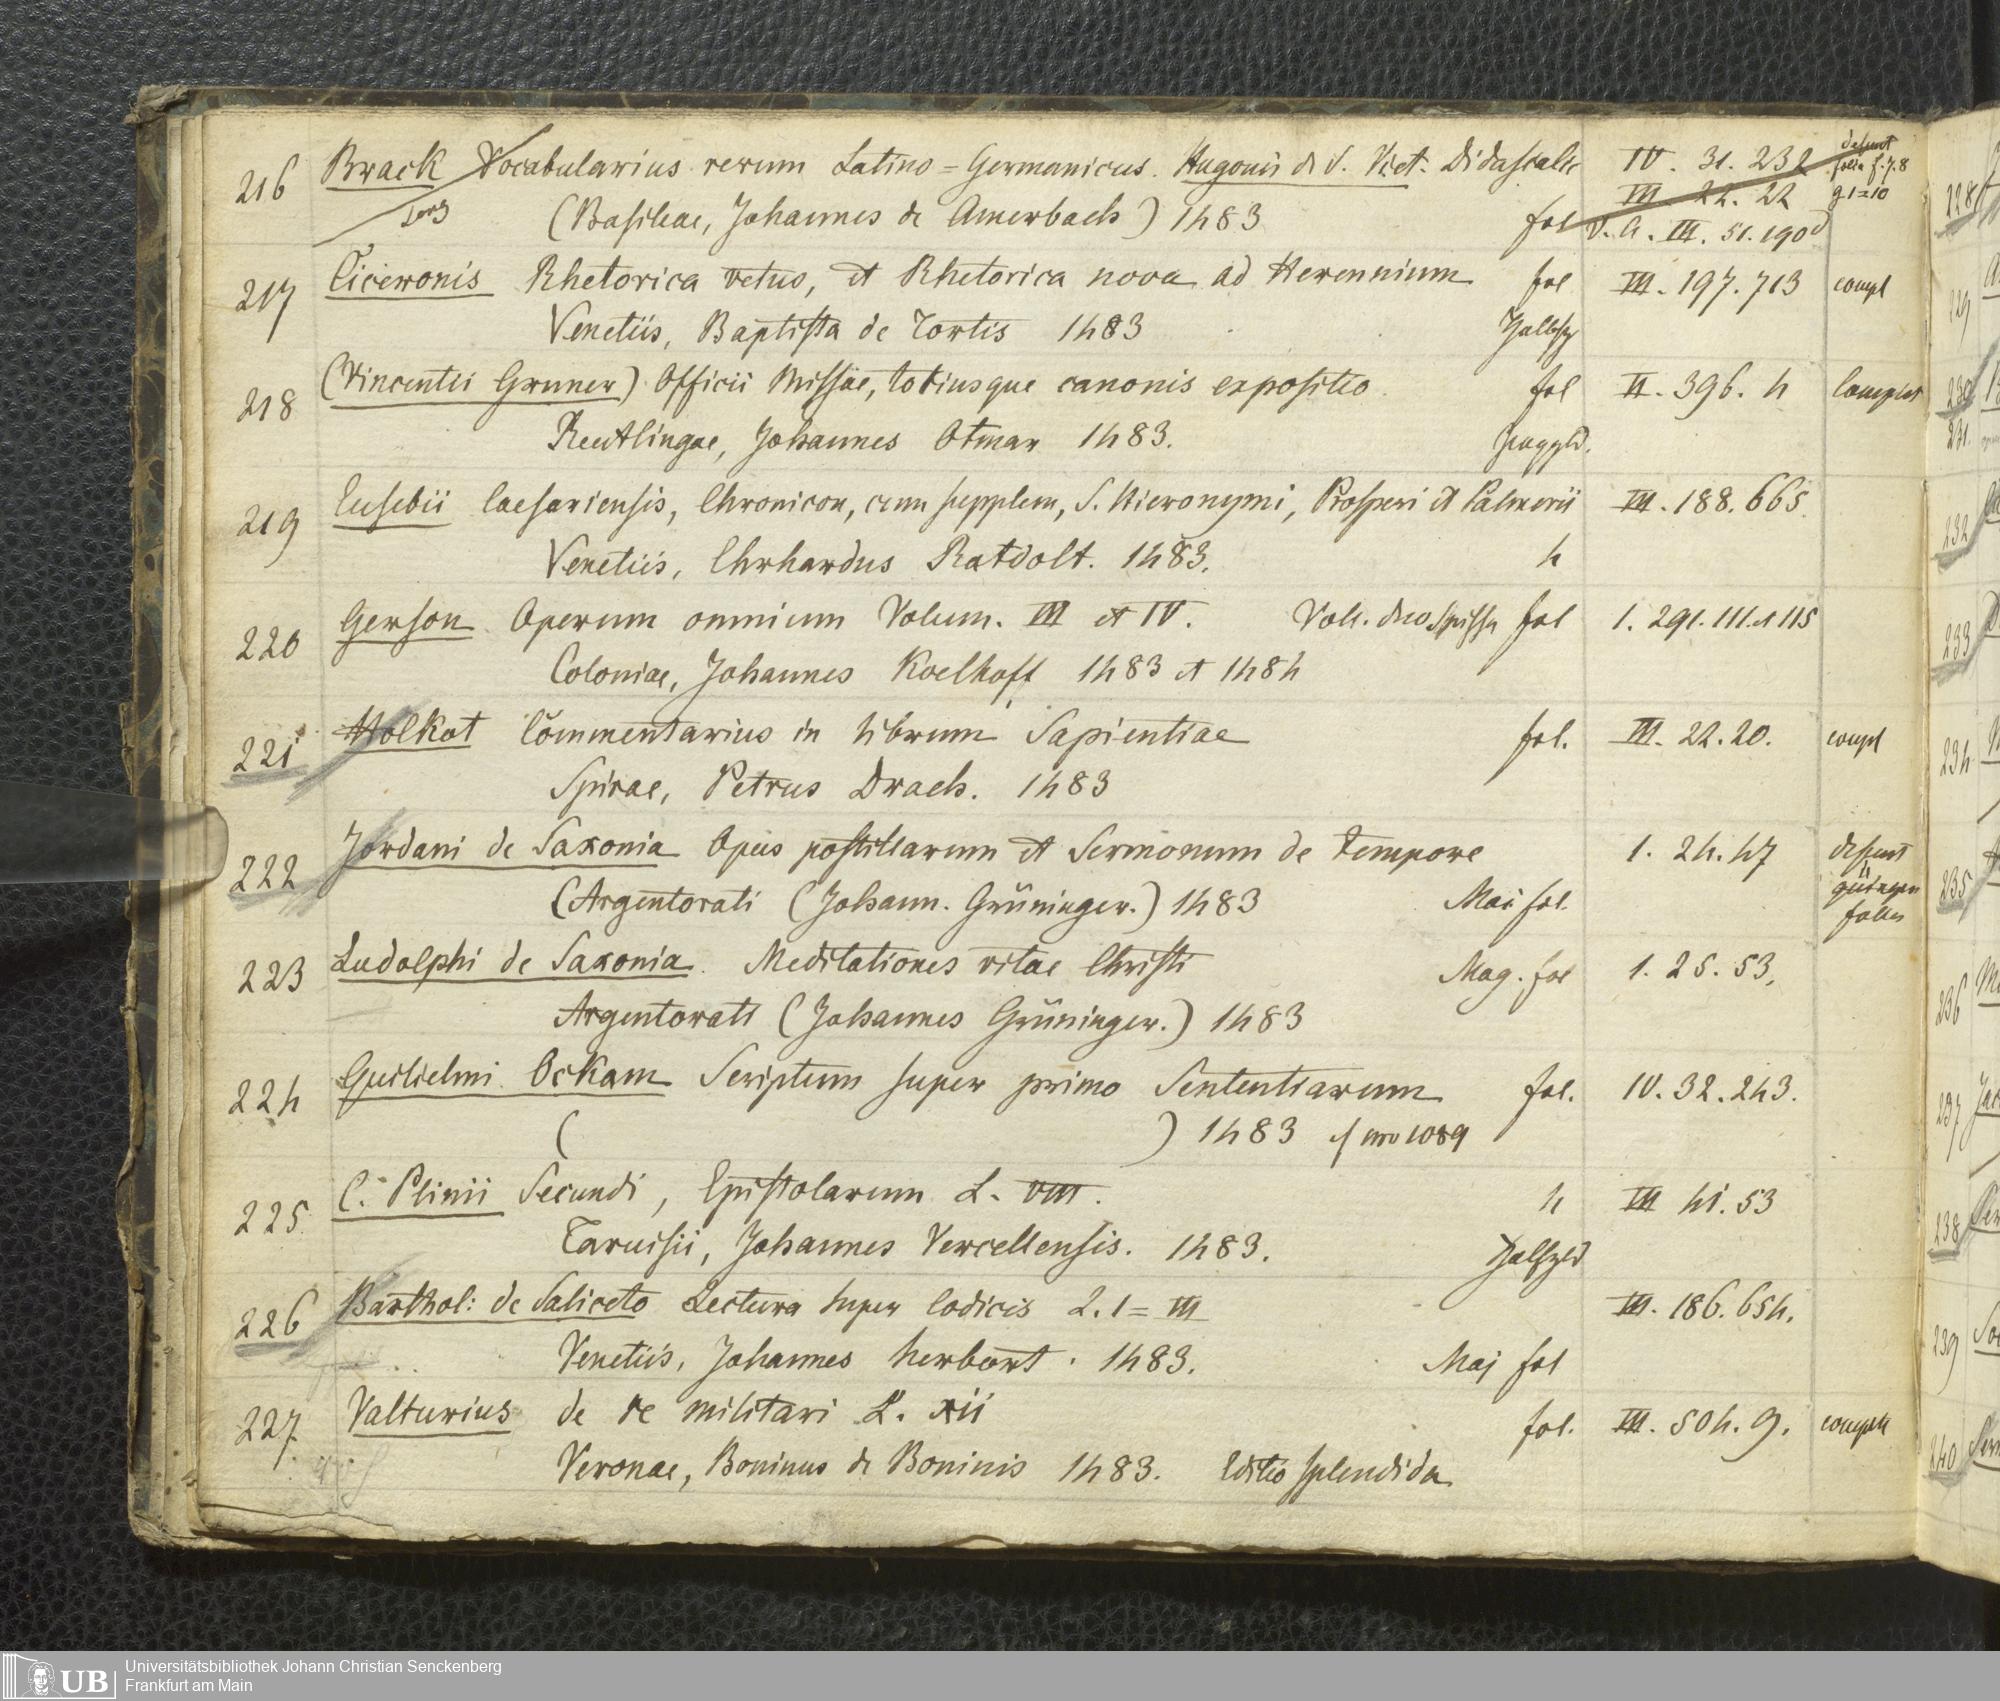 216 Brack Vocabularius rerum Latino=Germanicus. Hugonis de S. Vict. Didascalic IV. 31. 232 desunt folia f. 7. 8
(Basileae, Johannes de Amerbach) 1483 fol III. 22. 22 g. 1=10
V. A. III. 51. 190d
217 Ciceronis Rhetorica vetus, et Rhetorica nova ad Herennium fol III. 197. 713 compl
Venetiis, Baptista de Tortis 1483
218 (Vincentii Gruner) Officii Missae, totiusque canonis expositio fol II. 396. 4 complet
Reutlingae, Johannes Otmar 1483.
219 Eusebii Caesariensis, Chronicon, cum supplem, S. Hieronymi, Prosperi et Palmerii III. 188. 665
Venetiis, Ehrhardus Ratdolt. 1483. 4
220 Gerson Operum omnium Volum. III et IV. Voll. duo spissa fol 1. 291. 111. et 115
Coloniae, Johannes Koelhoff 1483 et 1484
221 Holkot Commentarius in librum Sapientiae fol. III. 22. 20. compl
Spirae, Petrus Drach. 1483
222 Jordani de Saxonia Opus postillarum et Sermonum de tempore 1. 24. 47 desunt
(Argentorati (Johann. Grüninger.) 1483 Maj fol.
223 Ludolphi de Saxonia. Meditationes vitae Christi Mag. fol 1. 25. 53.
Argentorati (Johannes Grüninger.) 1483
224 Guilielmi Ockam Scriptum super primo Sententiarum fol. IV. 32. 243.
( ) 1483 cf nro 1089
225 C. Plinii Secundi, Epistolarum L. VIII. 4 III 41. 53
Tarvisii, Johannes Vercellensis. 1483.
226 Barthol: de Saliceto Lectura super Codicis L. I=III III. 186. 654.
Venetiis, Johannes herbort. 1483. Maj fol
227 Valturius de re militari L. xii fol. III. 504. 9. complet
Veronae, Boninus de Boninis 1483. Editio splendida
228
229
230
231.
232
233
234
235
236
237
238
239
240
UB Universitätsbibliothek Johann Christian Senckenberg
Frankfurt am Main